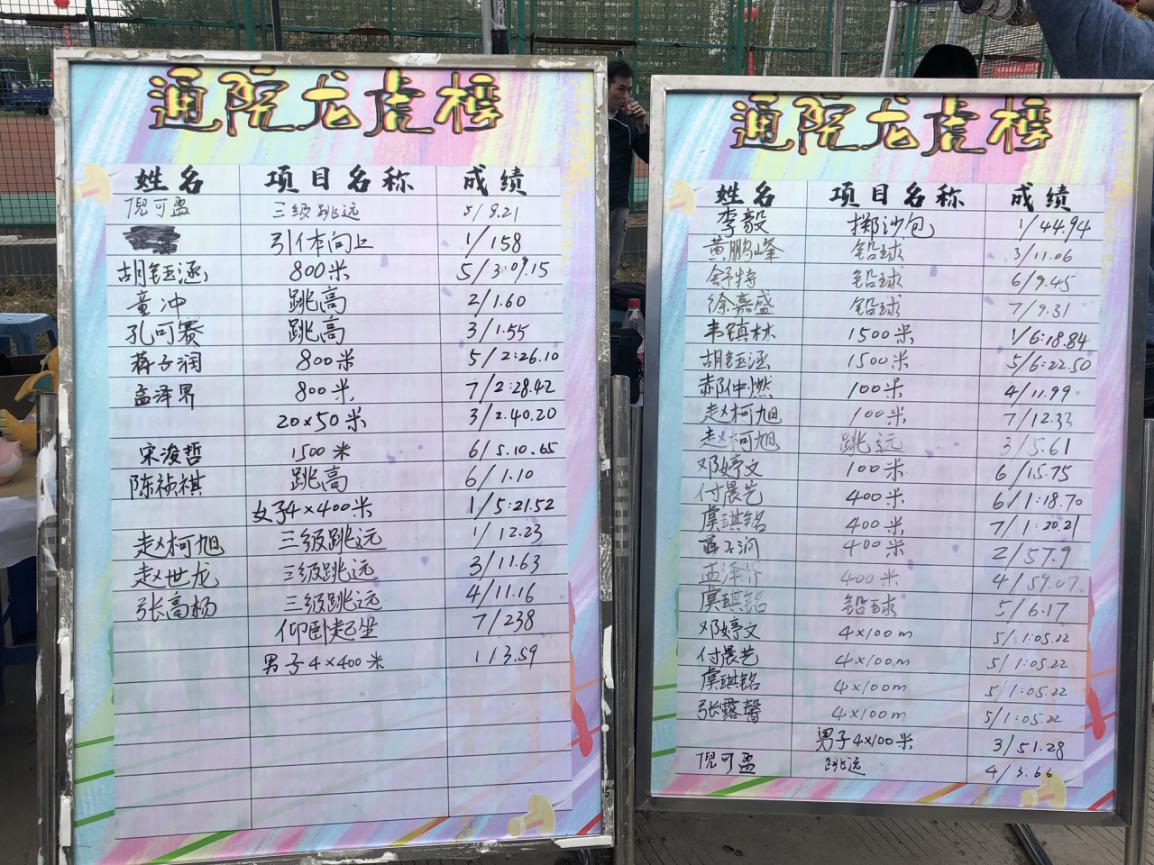 通院龙虎榜
姓名 项目名称 成绩
倪可盈 三级跳远 5/9.21
引体向上 1/158
胡钰涵 800米 5/3:09.15
童冲 跳高 2/1.60
孔可赛 跳高 3/1.55
蒋子润 800米 5/2:26.10
孟泽昂 800米 7/2:28.42
20×50米 3/2.40.20
宋浚哲 1500米 6/5.10.65
陈祯祺 跳高 6/1.10
女子4×400米 1/5:21.52
赵柯旭 三级跳远 1/12.23
赵世龙 三级跳远 3/11.63
张高杨 三级跳远 4/11.16
仰卧起坐 7/238
男子4×400米 1/3.59
通院龙虎榜
姓名 项目名称 成绩
李毅 掷沙包 1/44.94
黄鹏峰 铅球 3/11.06
舒特 铅球 6/9.45
徐嘉盛 铅球 7/9.31
韦镇林 1500米 1/6:18.84
胡钰涵 1500米 5/6:22.50
郝仲燃 100米 4/11.99
赵柯旭 100米 7/12.33
赵柯旭 跳远 3/5.61
邓婷文 100米 6/15.75
付晨艺 400米 6/1:18.70
虞琪铭 400米 7/1:20.21
子润 400米 2/57.9
孟泽 400米 4/59.07
虞琪铭 铅球 5/6.17
邓婷文 4×100m 5/1:05.22
付晨艺 4×100m 5/1:05.22
虞琪铭 4×100m 5/1:05.22
张露馨 4×100m 5/1:05.22
男子4×100米 3/51.28
倪可盈 跳远 4/3.66